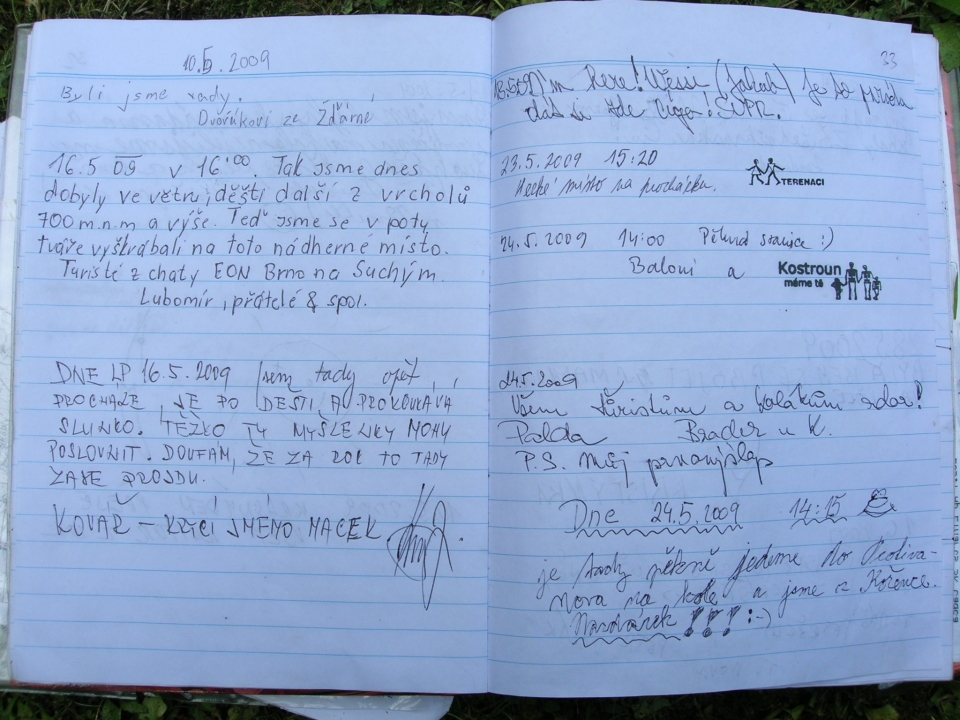 10.5.2009
Byli jsme rady.
Dvořákovi ze Žďárné
16.5 09 v 16:00. Tak jsme dnes
dobyly ve větru, dešti další z vrcholů
700 m.n.m a výše. Teď jsme se v poty
tváře vyškrábali na toto nádherné místo.
Turisté z chaty EON Brno na Suchým.
Lubomír, přátelé & spol.
DNE LP 16.5.2009 jsem tady opět,
PROCHÁZE JE PO DEŠTI A PROKOUKAVÁ
SLUNKO. TĚŽKO TY MYŠLENKY MOHU
POSLOUNIT. DOUFÁM, ŽE ZA ROK TO TADY
ZASE PROJDU.
KOVÁŘ - KRYCÍ JMÉNO MACEK
33
(Jakub) je to
si zde SUPR.
23.5.2009 15:20
Hezké místo na procházku.
TERENACI
24.5.2009 14:00 Pěkná :)
Baloni a Kostroun
máme tě
24.5.2009
Všem turistům a kolákům zdar!
Palda Brader u K.
P.S. Můj
Dne 24.5.2009 14:15
je tady pěkně jedeme do
nova na kole a jsme z Kořence.
Nazdárek!!! :-)